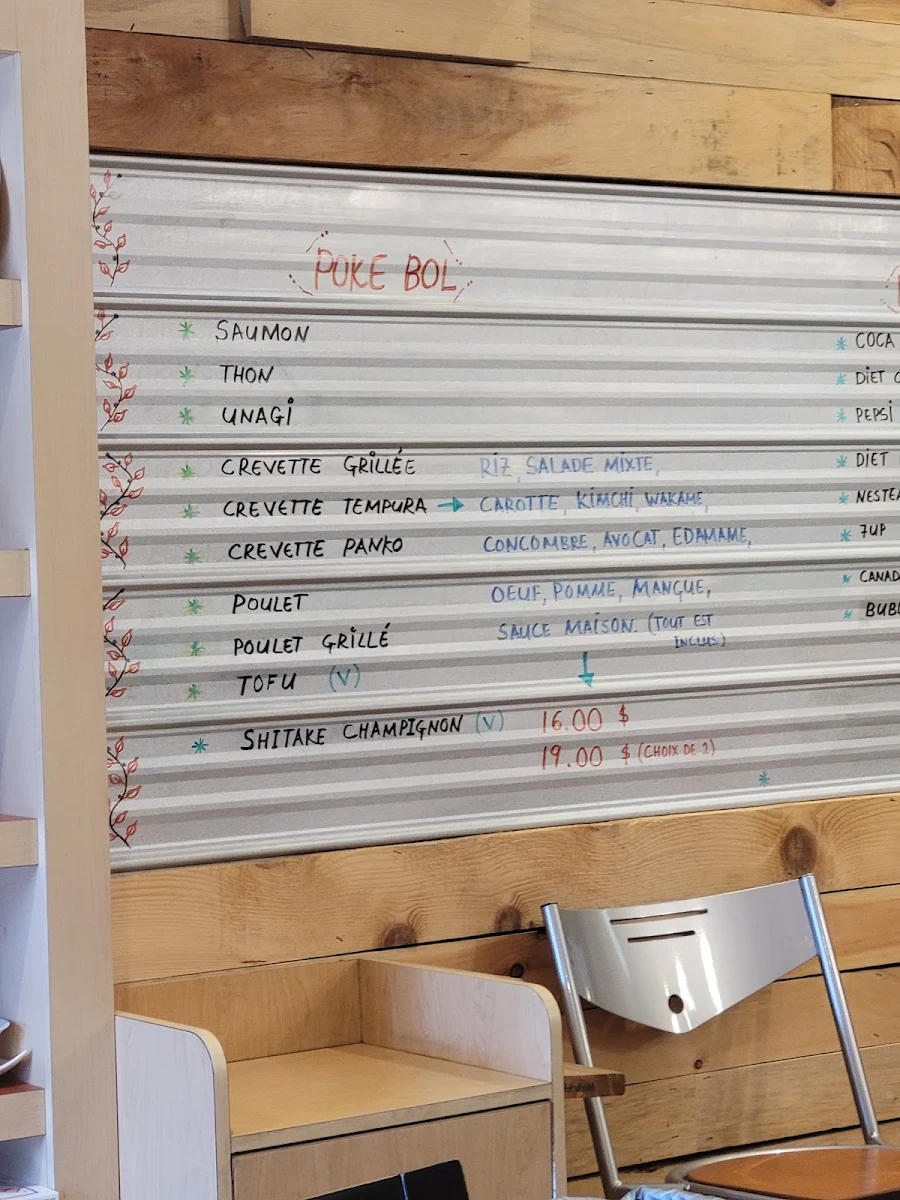 POKE BOL
* SAUMON
* THON
* UNAGI
* CREVETTE GRILLÉE
* CREVETTE TEMPURA →
* CREVETTE PANKO
* POULET
* POULET GRILLÉ
* TOFU (V)
* SHITAKE CHAMPIGNON (V)
RIZ, SALADE MIXTE,
CAROTTE, KIMCHI, WAKAME,
CONCOMBRE, AVOCAT, EDAMAME,
OEUF, POMME, MANGUE,
SAUCE MAISON. (TOUT EST
INCLUS)
16.00 $
19.00 $ (CHOIX DE 2)
* COCA
* DIET
* PEPSI
* DIET
* NESTEA
* 7UP
* CANAD
* BUB